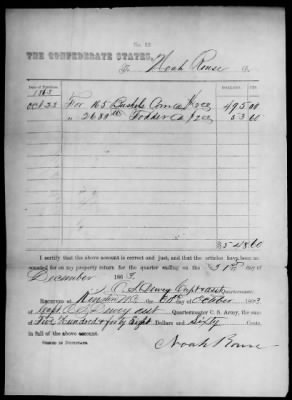 No. 12
THE CONFEDERATE STATES,
To Noah Rouse Dr.
Date of Purchase. DOLLARS. CENTS.
1863
Oct 23 For 165 Bushels Corn @ 3.00 495 00
" 2680 lbs Fodder @ 2.00 53 60
$548 60
I certify that the above account is correct and just, and that the articles have been ac-
counted for on my property return for the quarter ending on the 31st day of
December 1863.
Capt & aqm
RECEIVED at Kinston N.C. the of October 1863
Capt Dewey Quartermaster C. S. Army, the sum
Five Hundred & forty Eight Dollars and Sixty Cents,
in full of the above account.
SIGNED IN DUPLICATE.
Noah Rouse